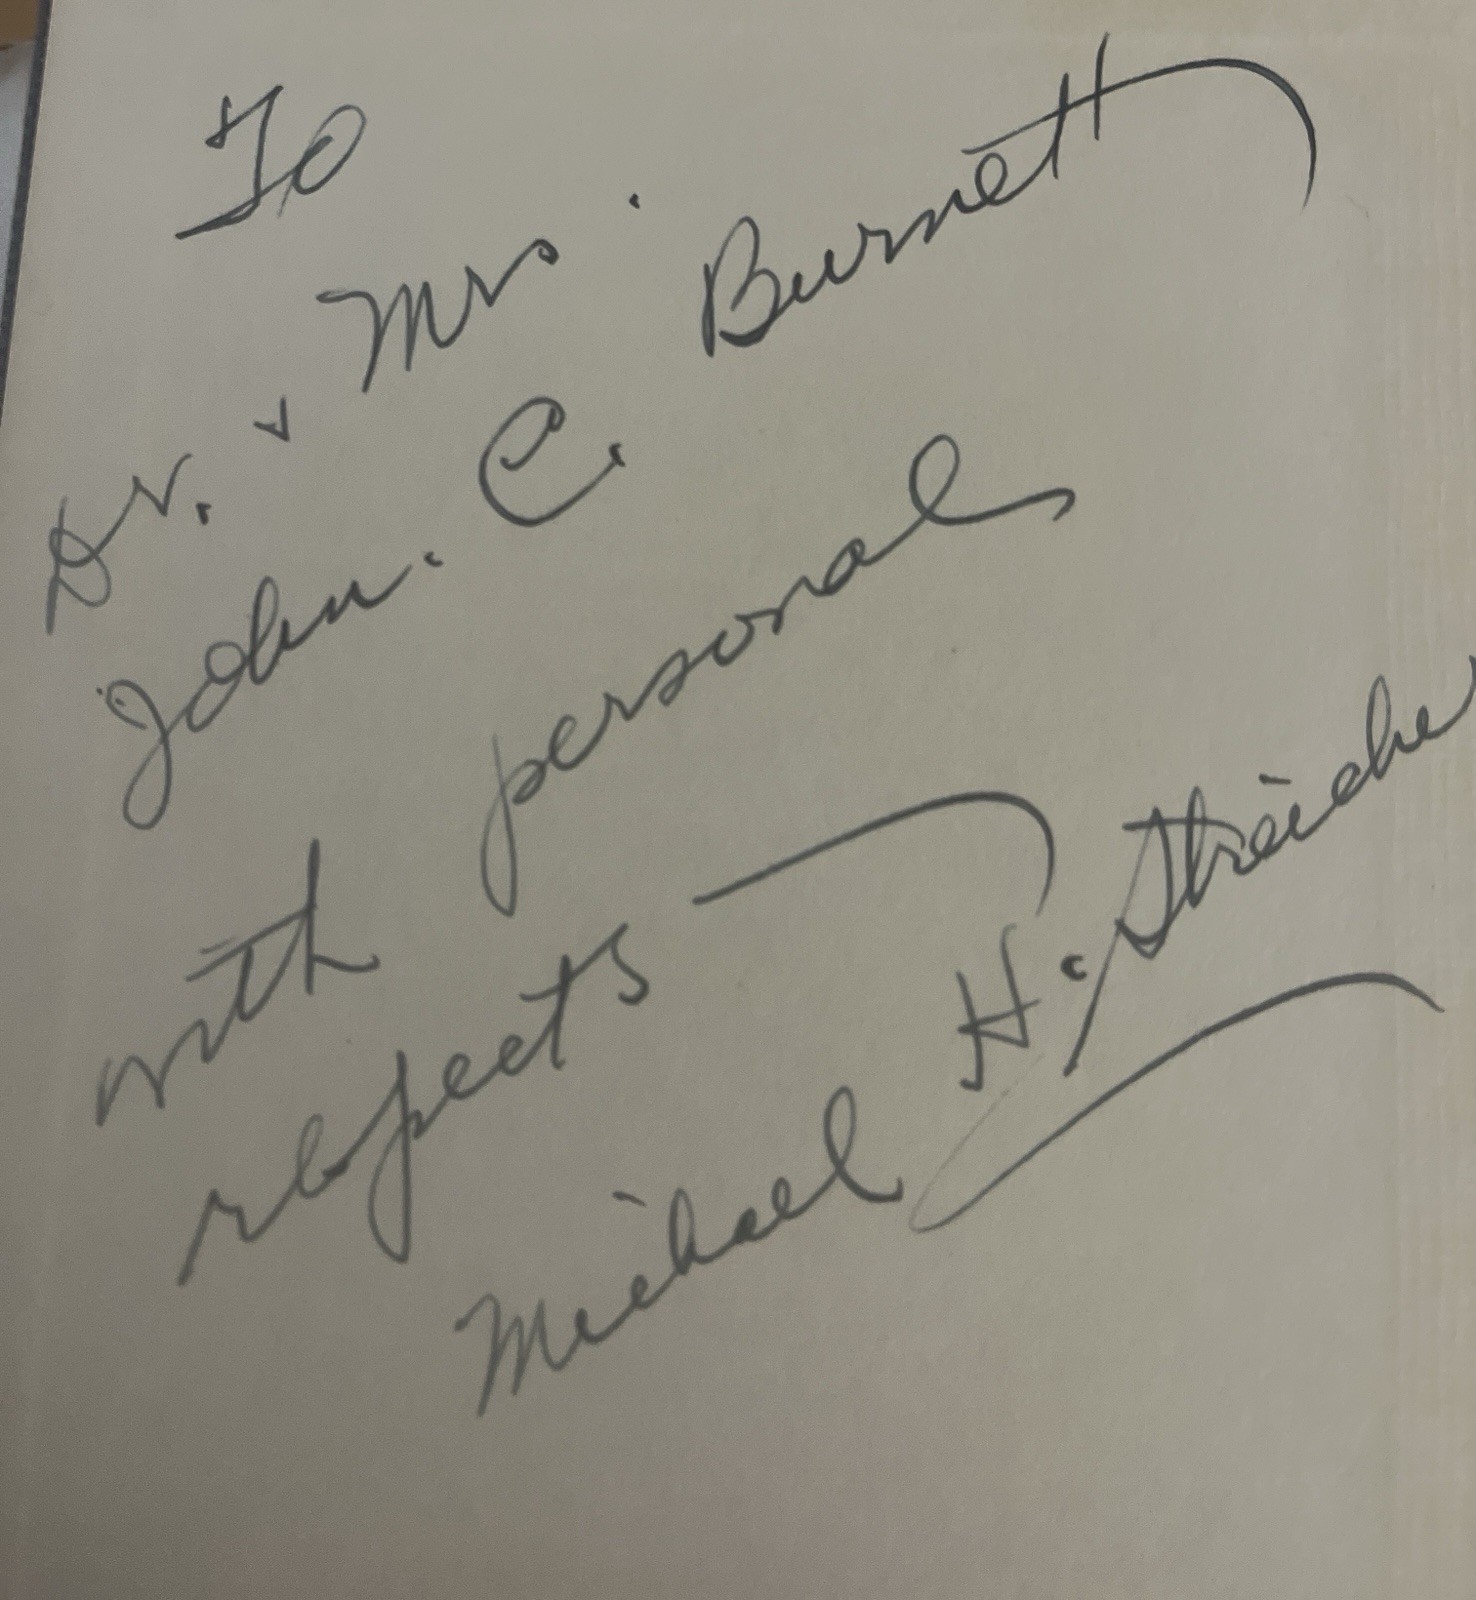 To
Dr. & Mrs.
John. C. Burnett
with personal
respects
Michael H. Streicher